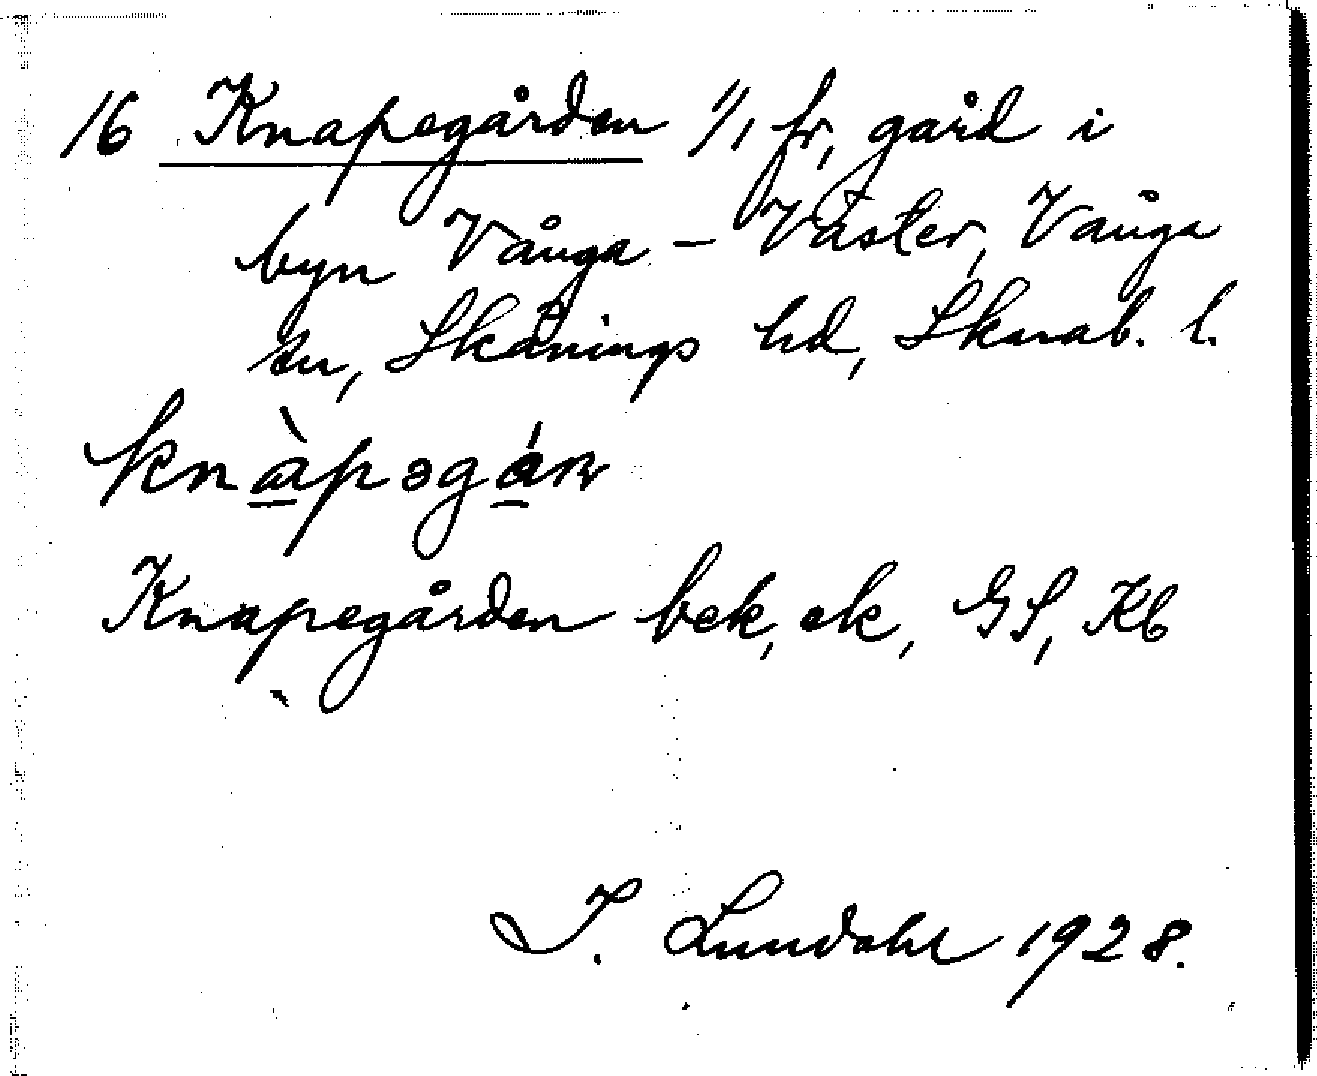 16 Knapegården 1/1 fr, gård i
byn Vånga - Väster, Vånga
sn, Skånings hd, Skarab. l.
knàpəgán
Knapegården bek, ek, GS, Kb
I. Lundahl 1928.